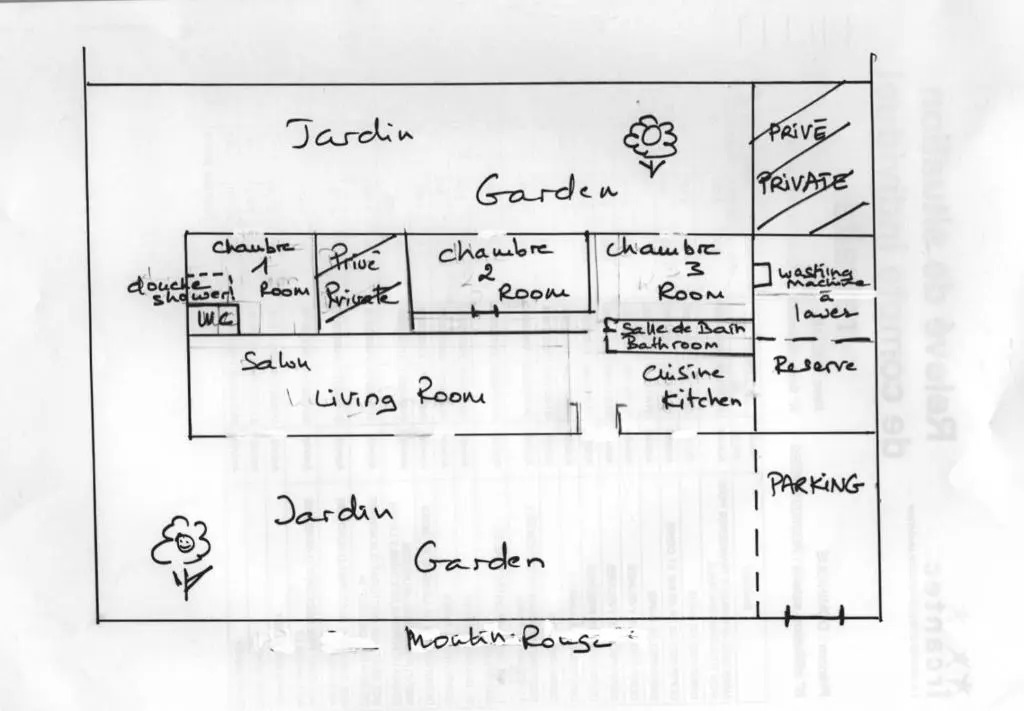 Jardin
Garden
PRIVÉ
PRIVATE
Chambre
1
ROOM
douche
shower
WC
Privé
Private
Chambre
2
ROOM
Chambre
3
ROOM
Salle de Bain
Bathroom
washing
machine
à
laver
Reserve
Salon
Living Room
Cuisine
Kitchen
Jardin
Garden
PARKING
Moulin Rouge